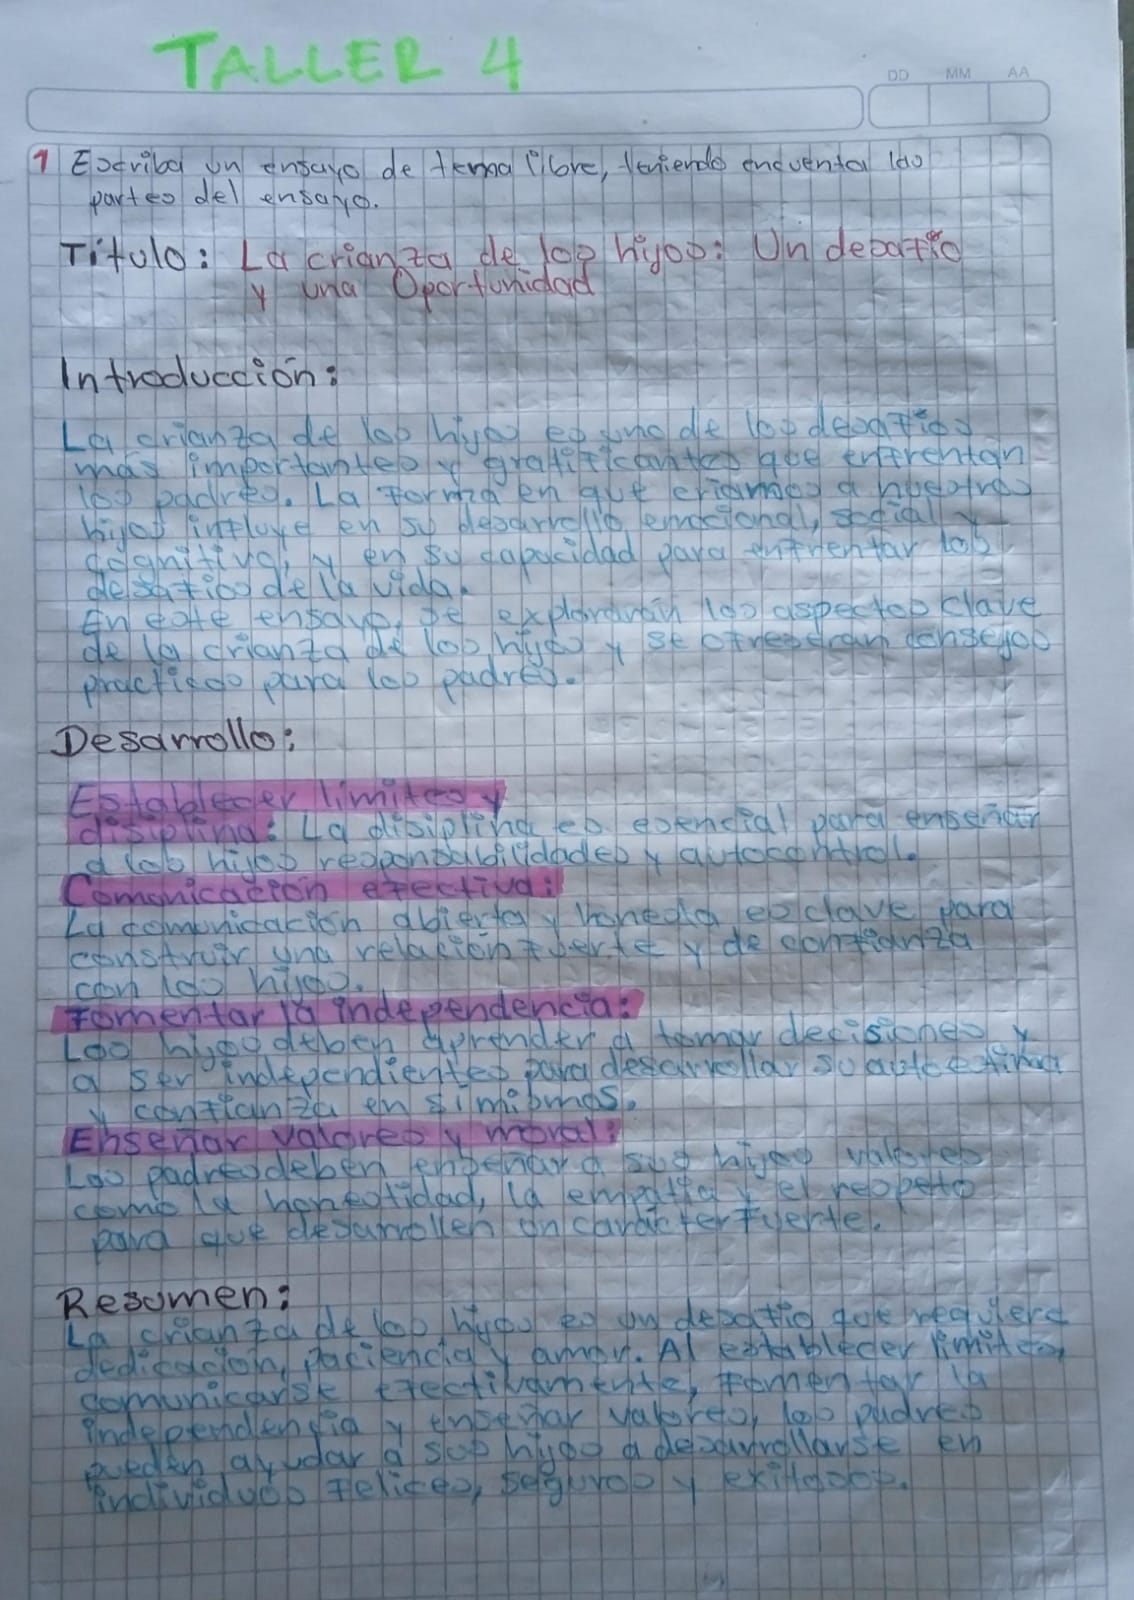 TALLER 4
DD MM AA
1 Escriba un ensayo de tema libre, teniendo encuenta las
partes del ensayo.
Título: La crianza de los hijos: Un desafío
y una Oportunidad
Introducción:
La crianza de los hijos es uno de los desafíos
más importantes y gratificantes que enfrentan
los padres. La forma en que criamos a nuestros
hijos influye en su desarrollo emocional, social y
cognitivo, y en su capacidad para enfrentar los
desafios de la vida.
En este ensayo, se explorarán los aspectos clave
de la crianza de los hijos y se ofreseran consejos
practicos para los padres.
Desarrollo:
Establecer límites y
disiplina: La disiplina es esencial para enseñar
a los hijos responsabilidades y autocontrol.
Comunicación efectiva:
La comunicación abierta y honesta es clave para
construir una relación fuerte y de confianza
con los hijos.
Fomentar la independencia:
Los hijos deben aprender a tomar decisiones y
a ser independientes para desarrollar su autoestima
y confianza en si mismos.
Enseñar valores y moral:
Los padres deben enseñar a sus hijos valores
como la honestidad, la empatía y el respeto
para que desarrollen un carácter fuerte.
Resumen:
La crianza de los hijos es un desafio que requiere
dedicación, paciencia y amor. Al establecer límites,
comunicarse efectivamente, fomentar la
independencia y enseñar valores, los padres
pueden ayudar a sus hijos a desarrollarse en
individuos felices, seguros y exitosos.